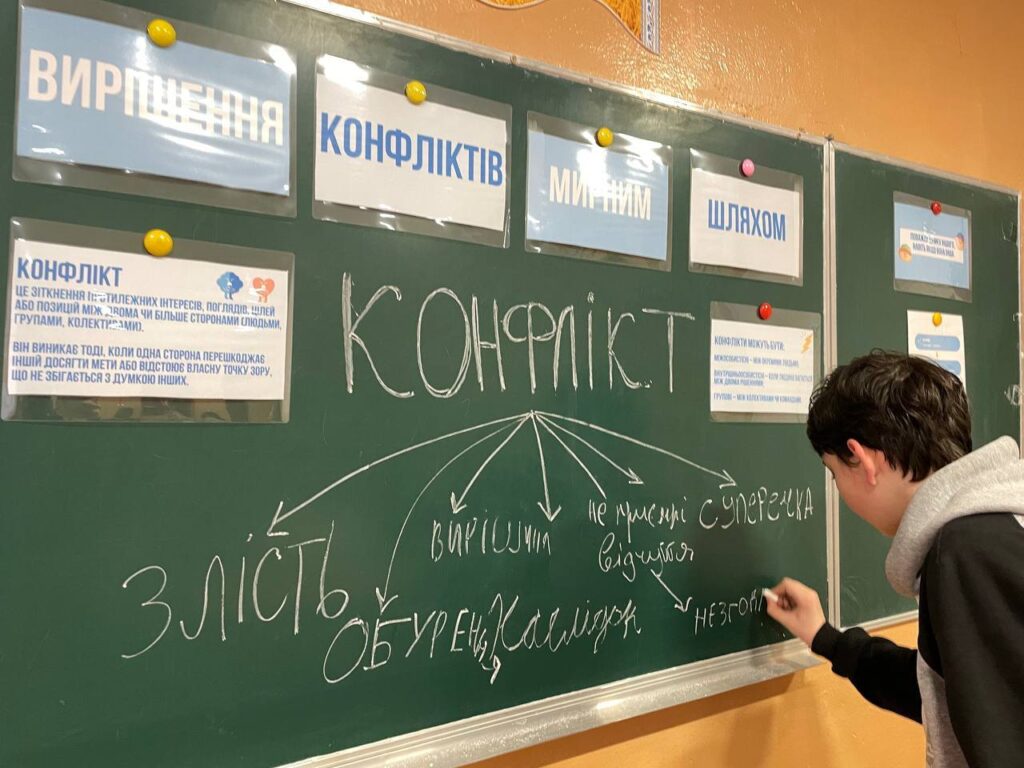 ВИРІШЕННЯ
КОНФЛІКТІВ
МИРНИМ
ШЛЯХОМ
КОНФЛІКТ
ЦЕ ЗІТКНЕННЯ ПРОТИЛЕЖНИХ ІНТЕРЕСІВ, ПОГЛЯДІВ, ЦІЛЕЙ
АБО ПОЗИЦІЙ МІЖ ДВОМА ЧИ БІЛЬШЕ СТОРОНАМИ (ЛЮДЬМИ,
ГРУПАМИ, КОЛЕКТИВАМИ).
ВІН ВИНИКАЄ ТОДІ, КОЛИ ОДНА СТОРОНА ПЕРЕШКОДЖАЄ
ІНШІЙ ДОСЯГТИ МЕТИ АБО ВІДСТОЮЄ ВЛАСНУ ТОЧКУ ЗОРУ,
ЩО НЕ ЗБІГАЄТЬСЯ З ДУМКОЮ ІНШИХ.
КОНФЛІКТ
КОНФЛІКТИ МОЖУТЬ БУТИ:
МІЖОСОБИСТІСНІ – МІЖ ОКРЕМИМИ ЛЮДЬМИ,
ВНУТРІШНЬООСОБИСТІСНІ – КОЛИ ЛЮДИНА ВАГАЄТЬСЯ
МІЖ ДВОМА РІШЕННЯМИ,
ГРУПОВІ – МІЖ КОЛЕКТИВАМИ ЧИ КОМАНДАМИ.
ЗЛІСТЬ
ОБУРЕН
не приємні
відчуття
СУПЕРЕЧКА
НЕЗГОД